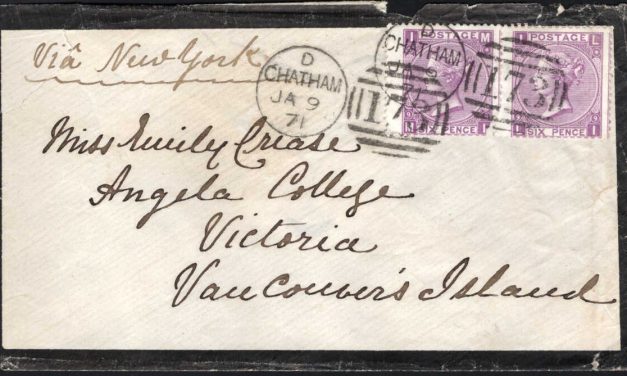 Viâ New York
D
CHATHAM
JA 9
71
173
POSTAGE
SIX PENCE
D
CHATHAM
JA 9
71
173
POSTAGE
SIX PENCE
Miss Emily Crease
Angela College
Victoria
VanCouver's Island